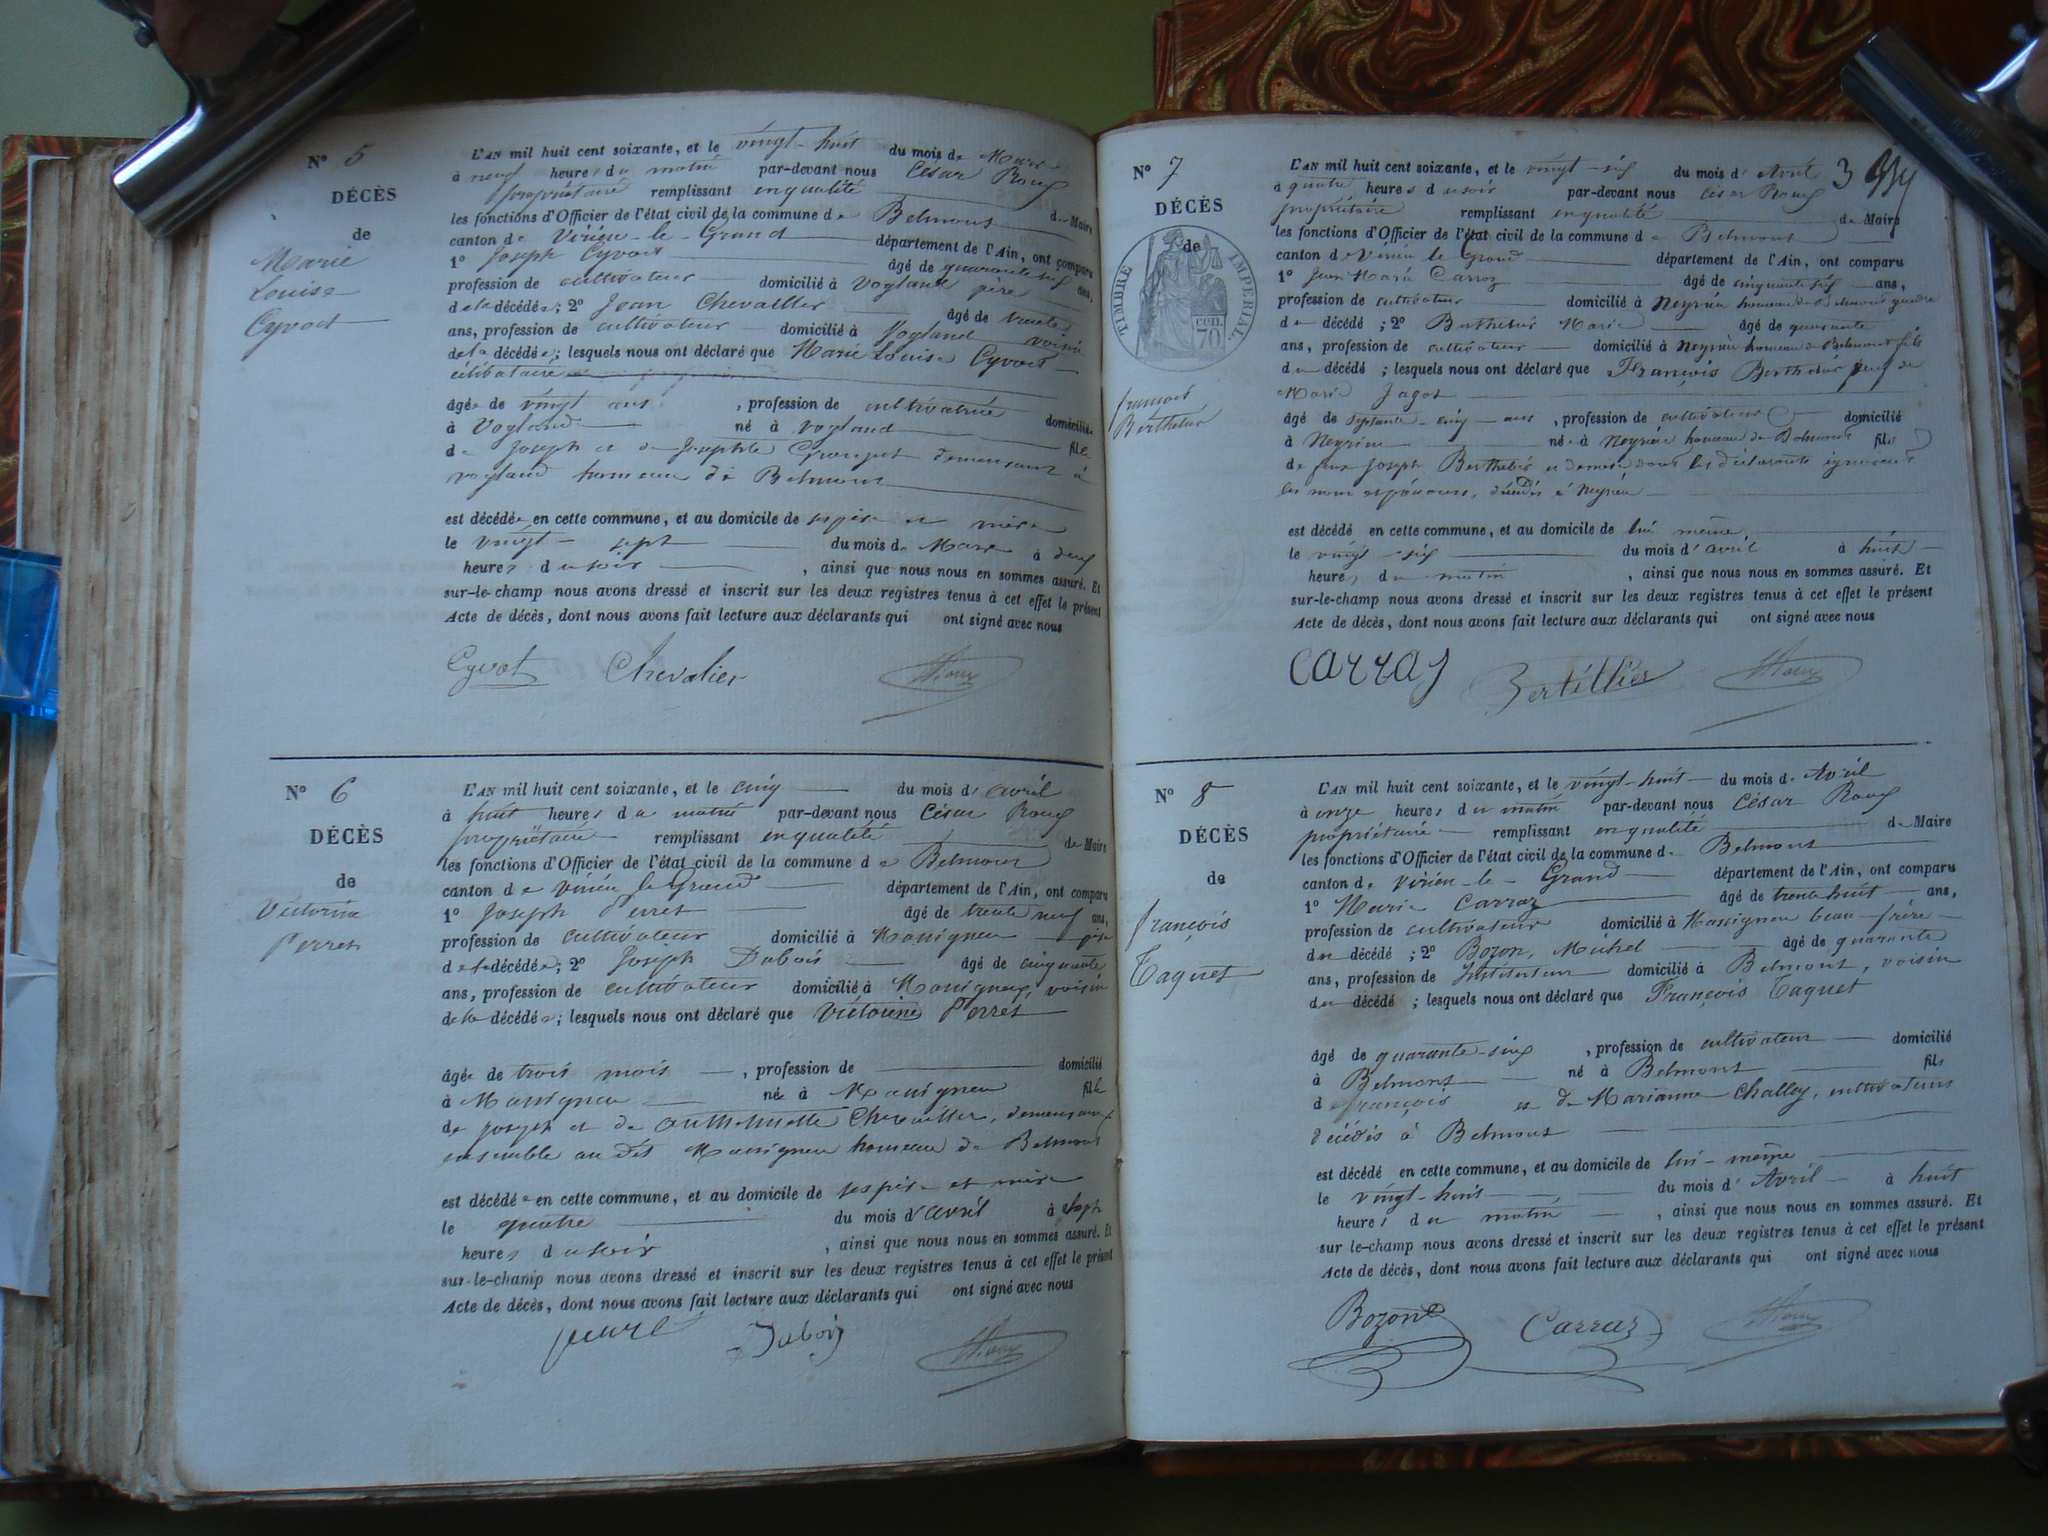 N° 5
DÉCÈS
de
Marie
Louise
Cyvoct
L'AN mil huit cent soixante, et le vingt-huit du mois de Mars
à neuf heures du matin par-devant nous César Roux
propriétaire remplissant en qualité de Maire
les fonctions d'Officier de l'état civil de la commune de Belmont
canton de Virieu-le-Grand département de l'Ain, ont comparu
1° Joseph Cyvoct âgé de quarante six ans,
profession de cultivateur domicilié à Vogland père
de la décédée; 2° Jean Chevallier âgé de trente
ans, profession de cultivateur domicilié à Vogland voisin
de la décédée; lesquels nous ont déclaré que Marie Louise Cyvoct
célibataire
âgée de vingt ans, profession de cultivatrice domiciliée
à Vogland né à Vogland fille
de Joseph et de Josephte demeurant à
vogland hameau de Belmont
est décédée en cette commune, et au domicile de ses père et mère
le vingt-sept du mois de Mars à deux
heures du soir, ainsi que nous nous en sommes assuré. Et
sur-le-champ nous avons dressé et inscrit sur les deux registres tenus à cet effet le présent
Acte de décès, dont nous avons fait lecture aux déclarants qui ont signé avec nous
Cyvot Chevalier Roux
N° 6
DÉCÈS
de
Victorine
Perret
L'AN mil huit cent soixante, et le cinq du mois d'avril
à huit heures du matin par-devant nous César Roux
propriétaire remplissant en qualité de Maire
les fonctions d'Officier de l'état civil de la commune de Belmont
canton de Virieu le Grand département de l'Ain, ont comparu
1° Joseph Perret âgé de trente neuf ans,
profession de cultivateur domicilié à Massigneu père
de la décédée; 2° Joseph Dubois âgé de cinquante
ans, profession de cultivateur domicilié à Massigneu, voisin
de la décédée; lesquels nous ont déclaré que Victorine Perret
âgée de trois mois, profession de domicilié
à Massigneu née à Massigneu fille
de Joseph et de Anthelmette Chevallier, demeurant
ensemble au dit Massigneu hameau de Belmont
est décédée en cette commune, et au domicile de ses père et mère
le quatre du mois d'avril à sept
heures du soir, ainsi que nous nous en sommes assuré. Et
sur-le-champ nous avons dressé et inscrit sur les deux registres tenus à cet effet le présent
Acte de décès, dont nous avons fait lecture aux déclarants qui ont signé avec nous
Dubois Roux
3
N° 7
DÉCÈS
de
TIMBRE IMPERIAL
CEN. 70
françois
Berthelier
L'AN mil huit cent soixante, et le vingt-six du mois d'Avril
à quatre heures du soir par-devant nous César Roux
propriétaire remplissant en qualité de Maire
les fonctions d'Officier de l'état civil de la commune de Belmont
canton de Virieu le Grand département de l'Ain, ont comparu
1° Jean Marie Carraz âgé de cinquante six ans,
profession de cultivateur domicilié à Neyrieu hameau de Belmont gendre
du décédé; 2° Marie âgé de quarante
ans, profession de cultivateur domicilié à Neyrieu hameau de Belmont fils
du décédé; lesquels nous ont déclaré que François veuf de
Marie Jagot
âgé de septante-cinq ans, profession de cultivateur domicilié
à Neyrieu né à Neyrieu hameau de Belmont fils
de feux Joseph et de les déclarants ignorent
les noms et prénoms, décédés à Neyrieu
est décédé en cette commune, et au domicile de lui même
le vingt-six du mois d'avril à huit
heures du matin, ainsi que nous nous en sommes assuré. Et
sur-le-champ nous avons dressé et inscrit sur les deux registres tenus à cet effet le présent
Acte de décès, dont nous avons fait lecture aux déclarants qui ont signé avec nous
Carraz Bertillier Roux
N° 8
DÉCÈS
de
françois
Taquet
L'AN mil huit cent soixante, et le vingt-huit du mois de Avril
à onze heures du matin par-devant nous César Roux
propriétaire remplissant en qualité de Maire
les fonctions d'Officier de l'état civil de la commune de Belmont
canton de Virieu-le-Grand département de l'Ain, ont comparu
1° Marie Carraz âgé de trente huit ans,
profession de cultivateur domicilié à Massigneu beau-frère
du décédé; 2° Bozon, Michel âgé de quarante
ans, profession de Instituteur domicilié à Belmont, voisin
du décédé; lesquels nous ont déclaré que François Taquet
âgé de quarante-six, profession de cultivateur domicilié
à Belmont né à Belmont fils
de françois et de Marianne Challey, cultivateurs
décédés à Belmont
est décédé en cette commune, et au domicile de lui-même
le vingt-huit du mois d'Avril à huit
heures du matin, ainsi que nous nous en sommes assuré. Et
sur le-champ nous avons dressé et inscrit sur les deux registres tenus à cet effet le présent
Acte de décès, dont nous avons fait lecture aux déclarants qui ont signé avec nous
Bozon Carraz Roux